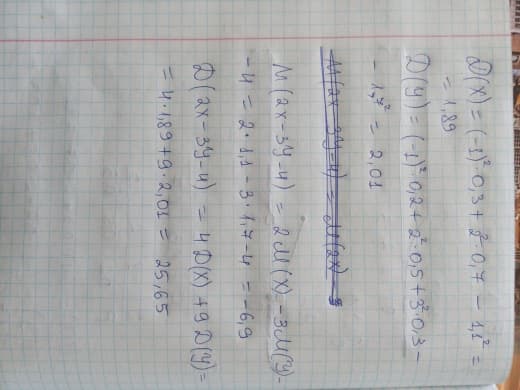 D(X) = (-1)² · 0,3 + 2² · 0,7 - 1,1² =
= 1,89
D(y) = (-1)² · 0,2 + 2² · 0,5 + 3² · 0,3 -
- 1,7² = 2,01
M(2x - 3y - 4) = M(2x) -
M(2x - 3y - 4) = 2M(X) - 3M(y) -
- 4 = 2 · 1,1 - 3 · 1,7 - 4 = -6,9
D(2x - 3y - 4) = 4D(X) + 9D(y) =
= 4 · 1,89 + 9 · 2,01 = 25,65